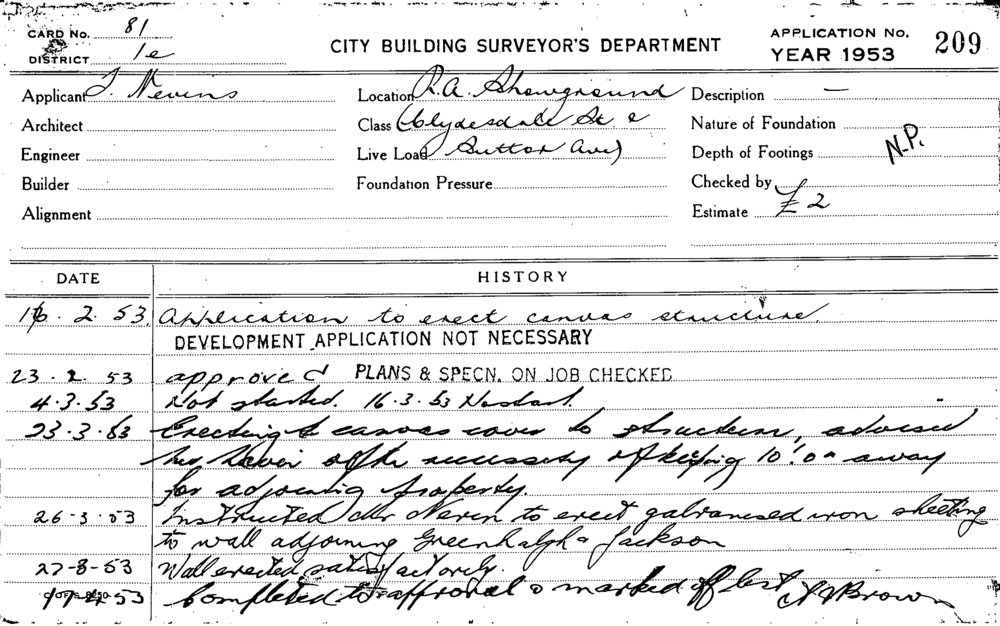 CARD No. 81
DISTRICT 1e
CITY BUILDING SURVEYOR'S DEPARTMENT
APPLICATION No. 209
YEAR 1953
Applicant J. Nevins
Architect
Engineer
Builder
Alignment
Location R.A. Showground
Class (Clydesdale St. &
Live Load Sutton Ave)
Foundation Pressure
Description —
Nature of Foundation
Depth of Footings N.P.
Checked by
Estimate £2
DATE HISTORY
16. 2. 53. Application to erect canvas structure.
DEVELOPMENT APPLICATION NOT NECESSARY
23. 2. 53 approved PLANS & SPECN. ON JOB CHECKED
4.3.53 Not started. 16.3.53 No start.
23.3.53 Erecting canvas cover to structure, advised
Mr Nevin of the necessity of keeping 10'.0" away
for adjoining property.
26-3-53 Instructed Mr Nevin to erect galvanised iron sheeting
to wall adjoining Greenhalgh & Jackson
27-8-53 Wall erected satisfactorily.
53 Completed to approval & marked off list Brown